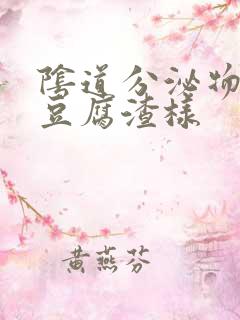 陰道分泌物
豆腐渣樣
黃燕芬